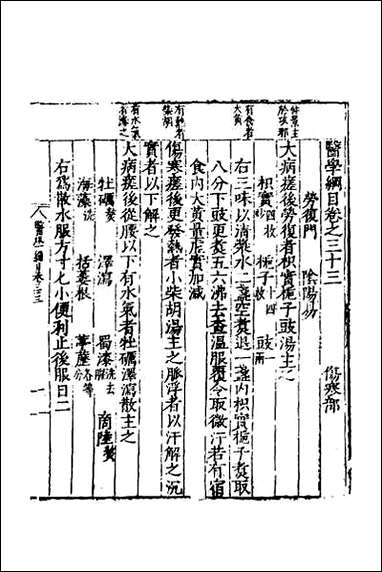 醫學綱目卷之三十三　傷寒部
勞復門　陰陽易
大病瘥後勞復者枳實梔子豉湯主之
枳實炒四枚　梔子十四枚　豉一兩
右三味以清漿水二盞空煑退一盞內枳實梔子煑取
八分下豉更煑五六沸去查溫服覆令取微汗若有宿
食內大黃量虛實加減
傷寒瘥後更發熱者小柴胡湯主之脈浮者以汗解之沉
實者以下解之
大病瘥後從腰以下有水氣者牡蠣澤瀉散主之
牡蠣熬　澤瀉　蜀漆洗去腥　商陸熬
海藻洗　括蔞根　葶藶各等
右為散水服方寸匕小便利止後服日二
有食者大黃
有熱者柴胡